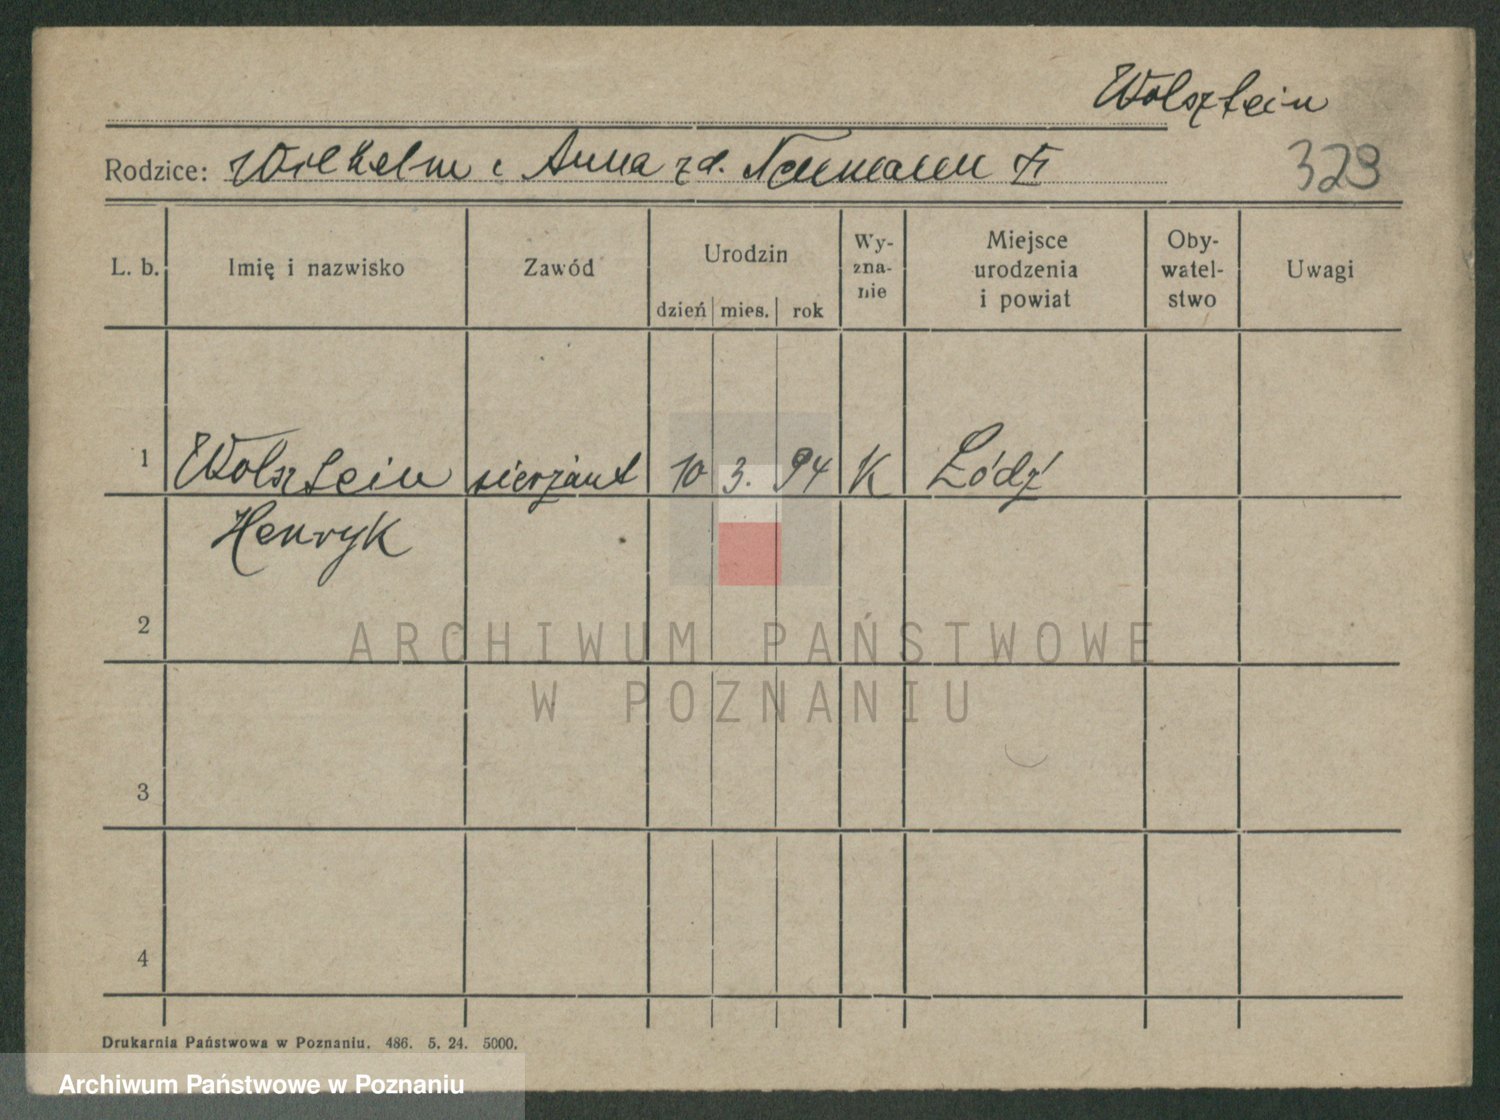 Wolsztein
Rodzice: Wilhelm i Anna zd. Neumann
329
L. b.
Imię i nazwisko
Zawód
Urodzin
dzień mies. rok
Wy-
zna-
nie
Miejsce
urodzenia
i powiat
Oby-
watel-
stwo
Uwagi
1 Wolsztein sierżant 10 3. 94 K Łódź
Henryk
2
ARCHIWUM PAŃSTWOWE
W POZNANIU
3
4
Drukarnia Państwowa w Poznaniu. 486. 5. 24. 5000.
Archiwum Państwowe w Poznaniu